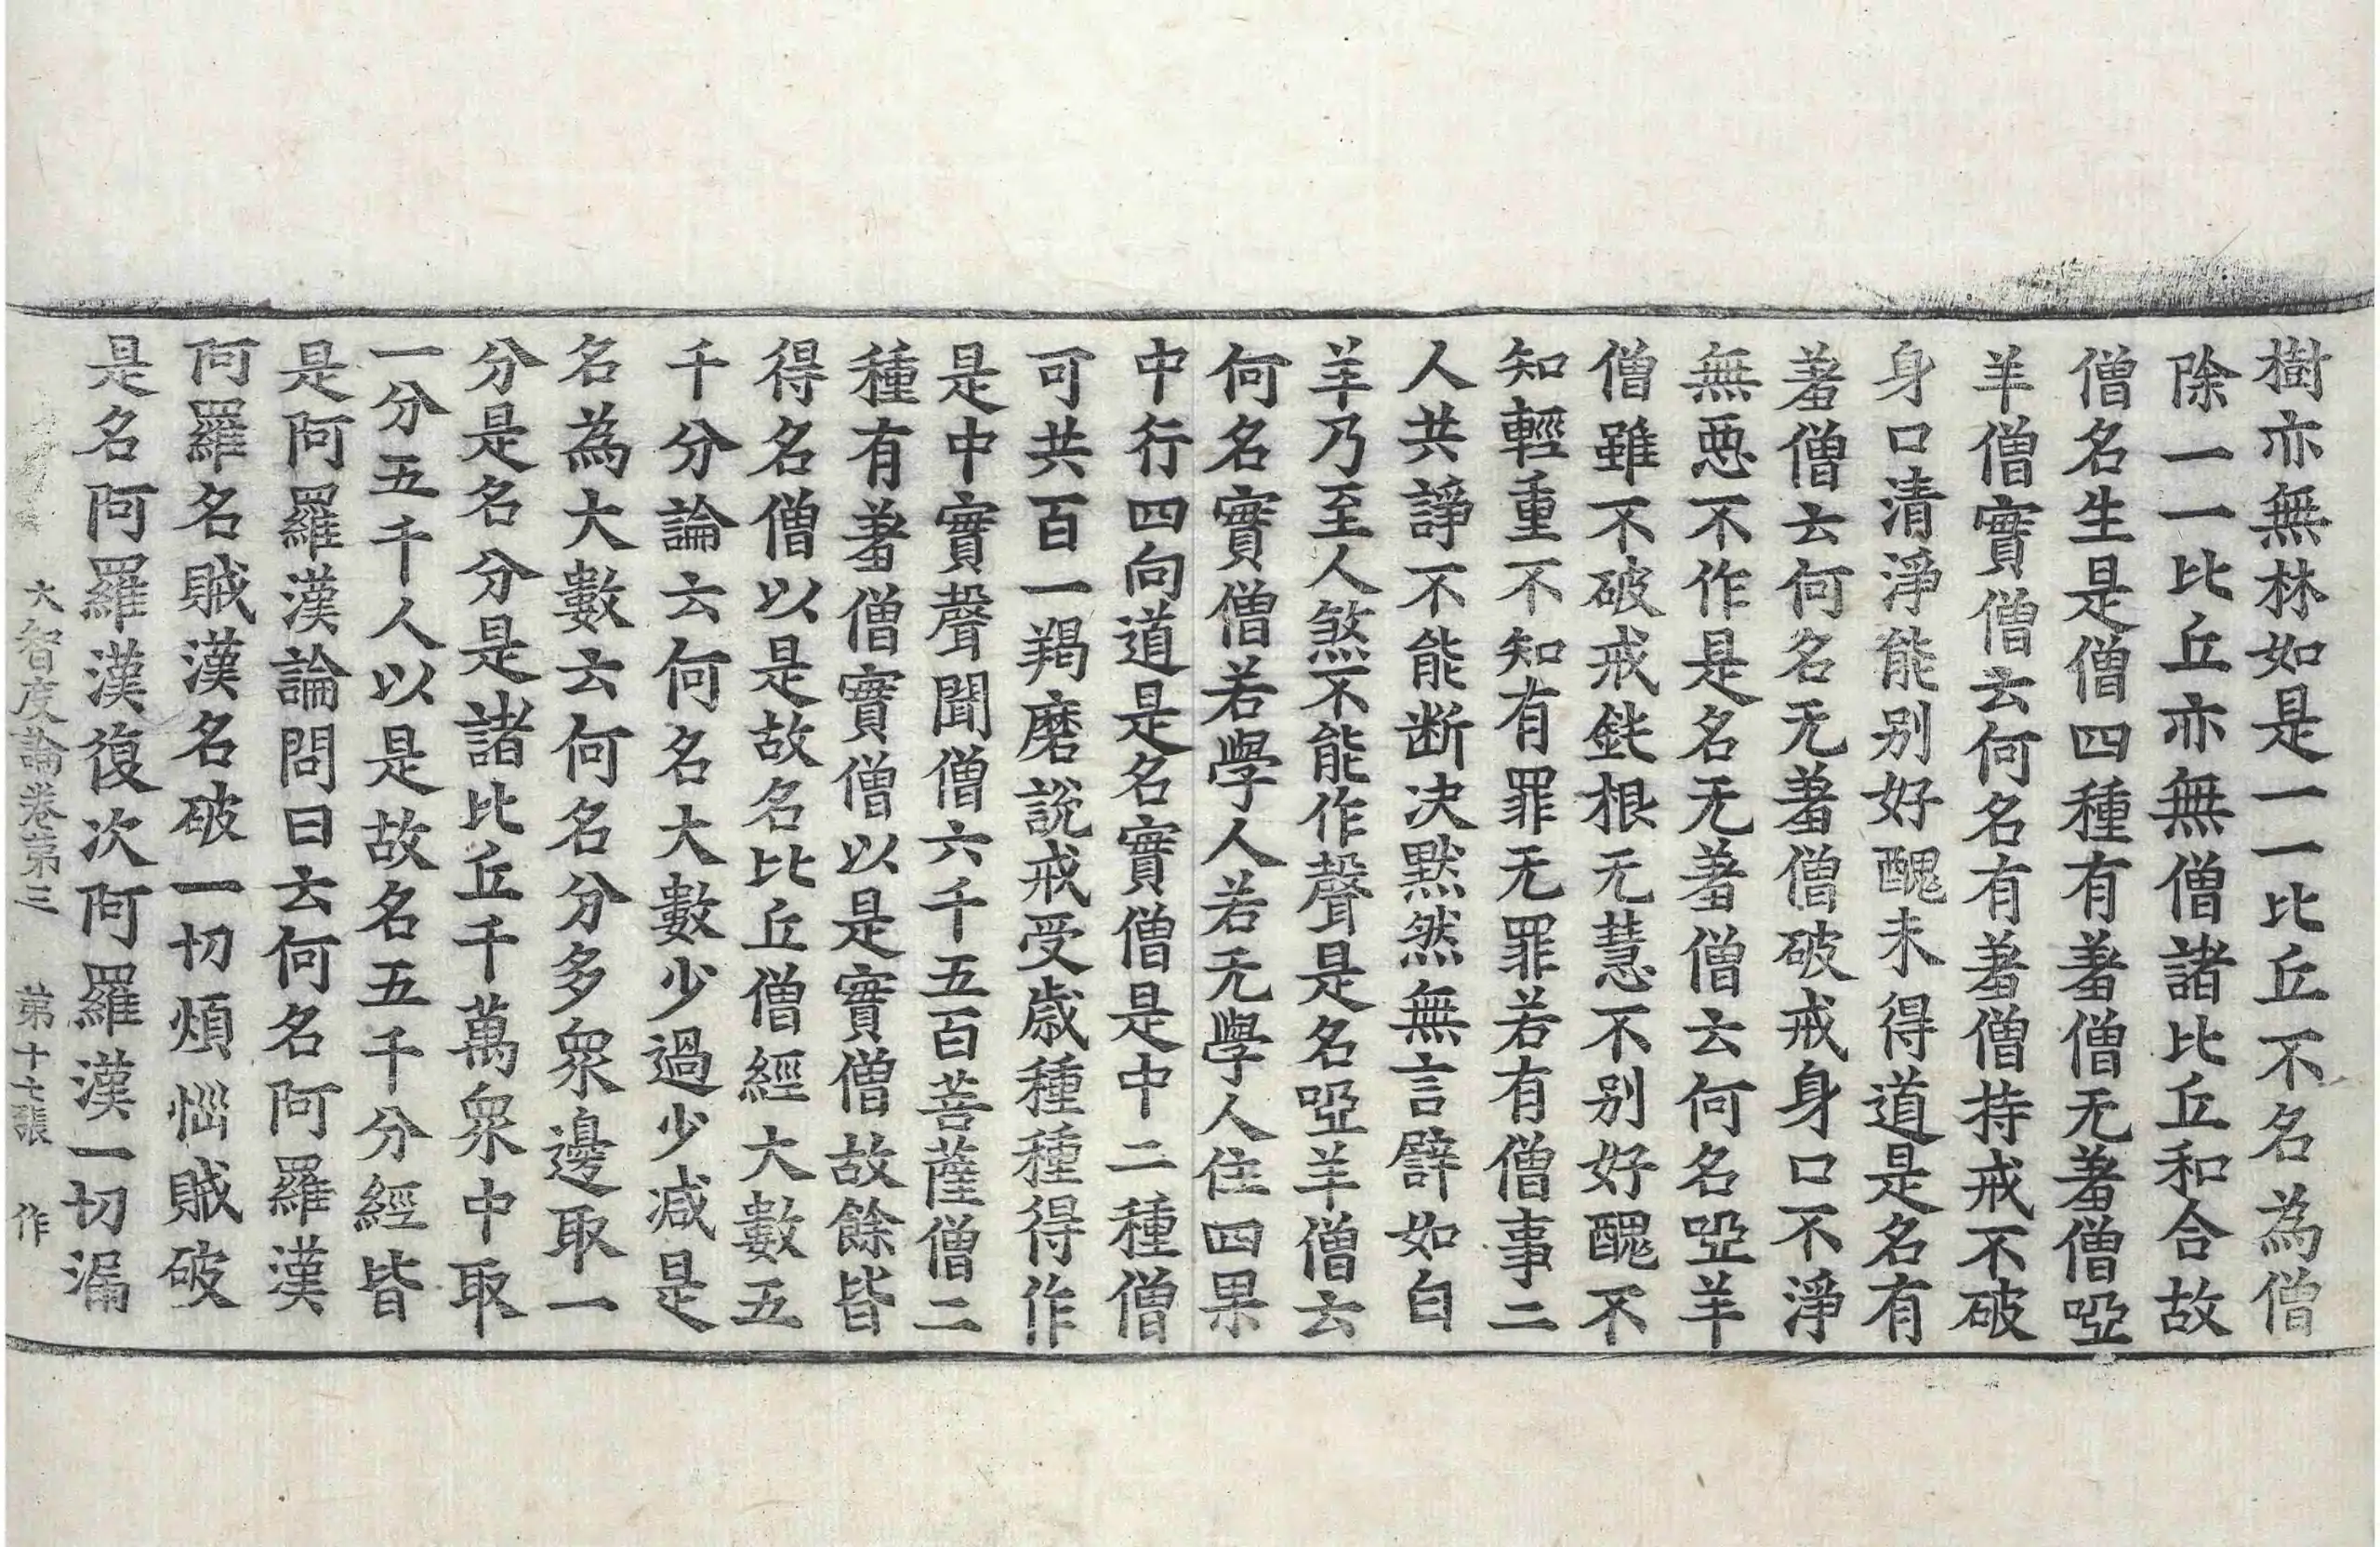 樹亦無林如是一一比丘不名為僧
除一一比丘亦無僧諸比丘和合故
僧名生是僧四種有羞僧无羞僧啞
羊僧實僧云何名有羞僧持戒不破
身口清淨能别好醜未得道是名有
羞僧云何名无羞僧破戒身口不淨
無惡不作是名无羞僧云何名啞羊
僧雖不破戒鈍根无慧不别好醜不
知輕重不知有罪无罪若有僧事二
人共諍不能断决黙然無言譬如白
羊乃至人煞不能作聲是名啞羊僧云
何名實僧若學人若无學人住四果
中行四向道是名實僧是中二種僧
可共百一羯磨說戒受歳種種得作
是中實聲聞僧六千五百菩薩僧二
種有羞僧實僧以是實僧故餘皆
得名僧以是故名比丘僧經大數五
千分論云何名大數少過少减是
名為大數云何名分多衆邊取一
分是名分是諸比丘千萬衆中取
一分五千人以是故名五千分經皆
是阿羅漢論問曰云何名阿羅漢
阿羅名賊漢名破一切煩惱賊破
是名阿羅漢復次阿羅漢一切漏
大智度論卷第三 第十七張 作